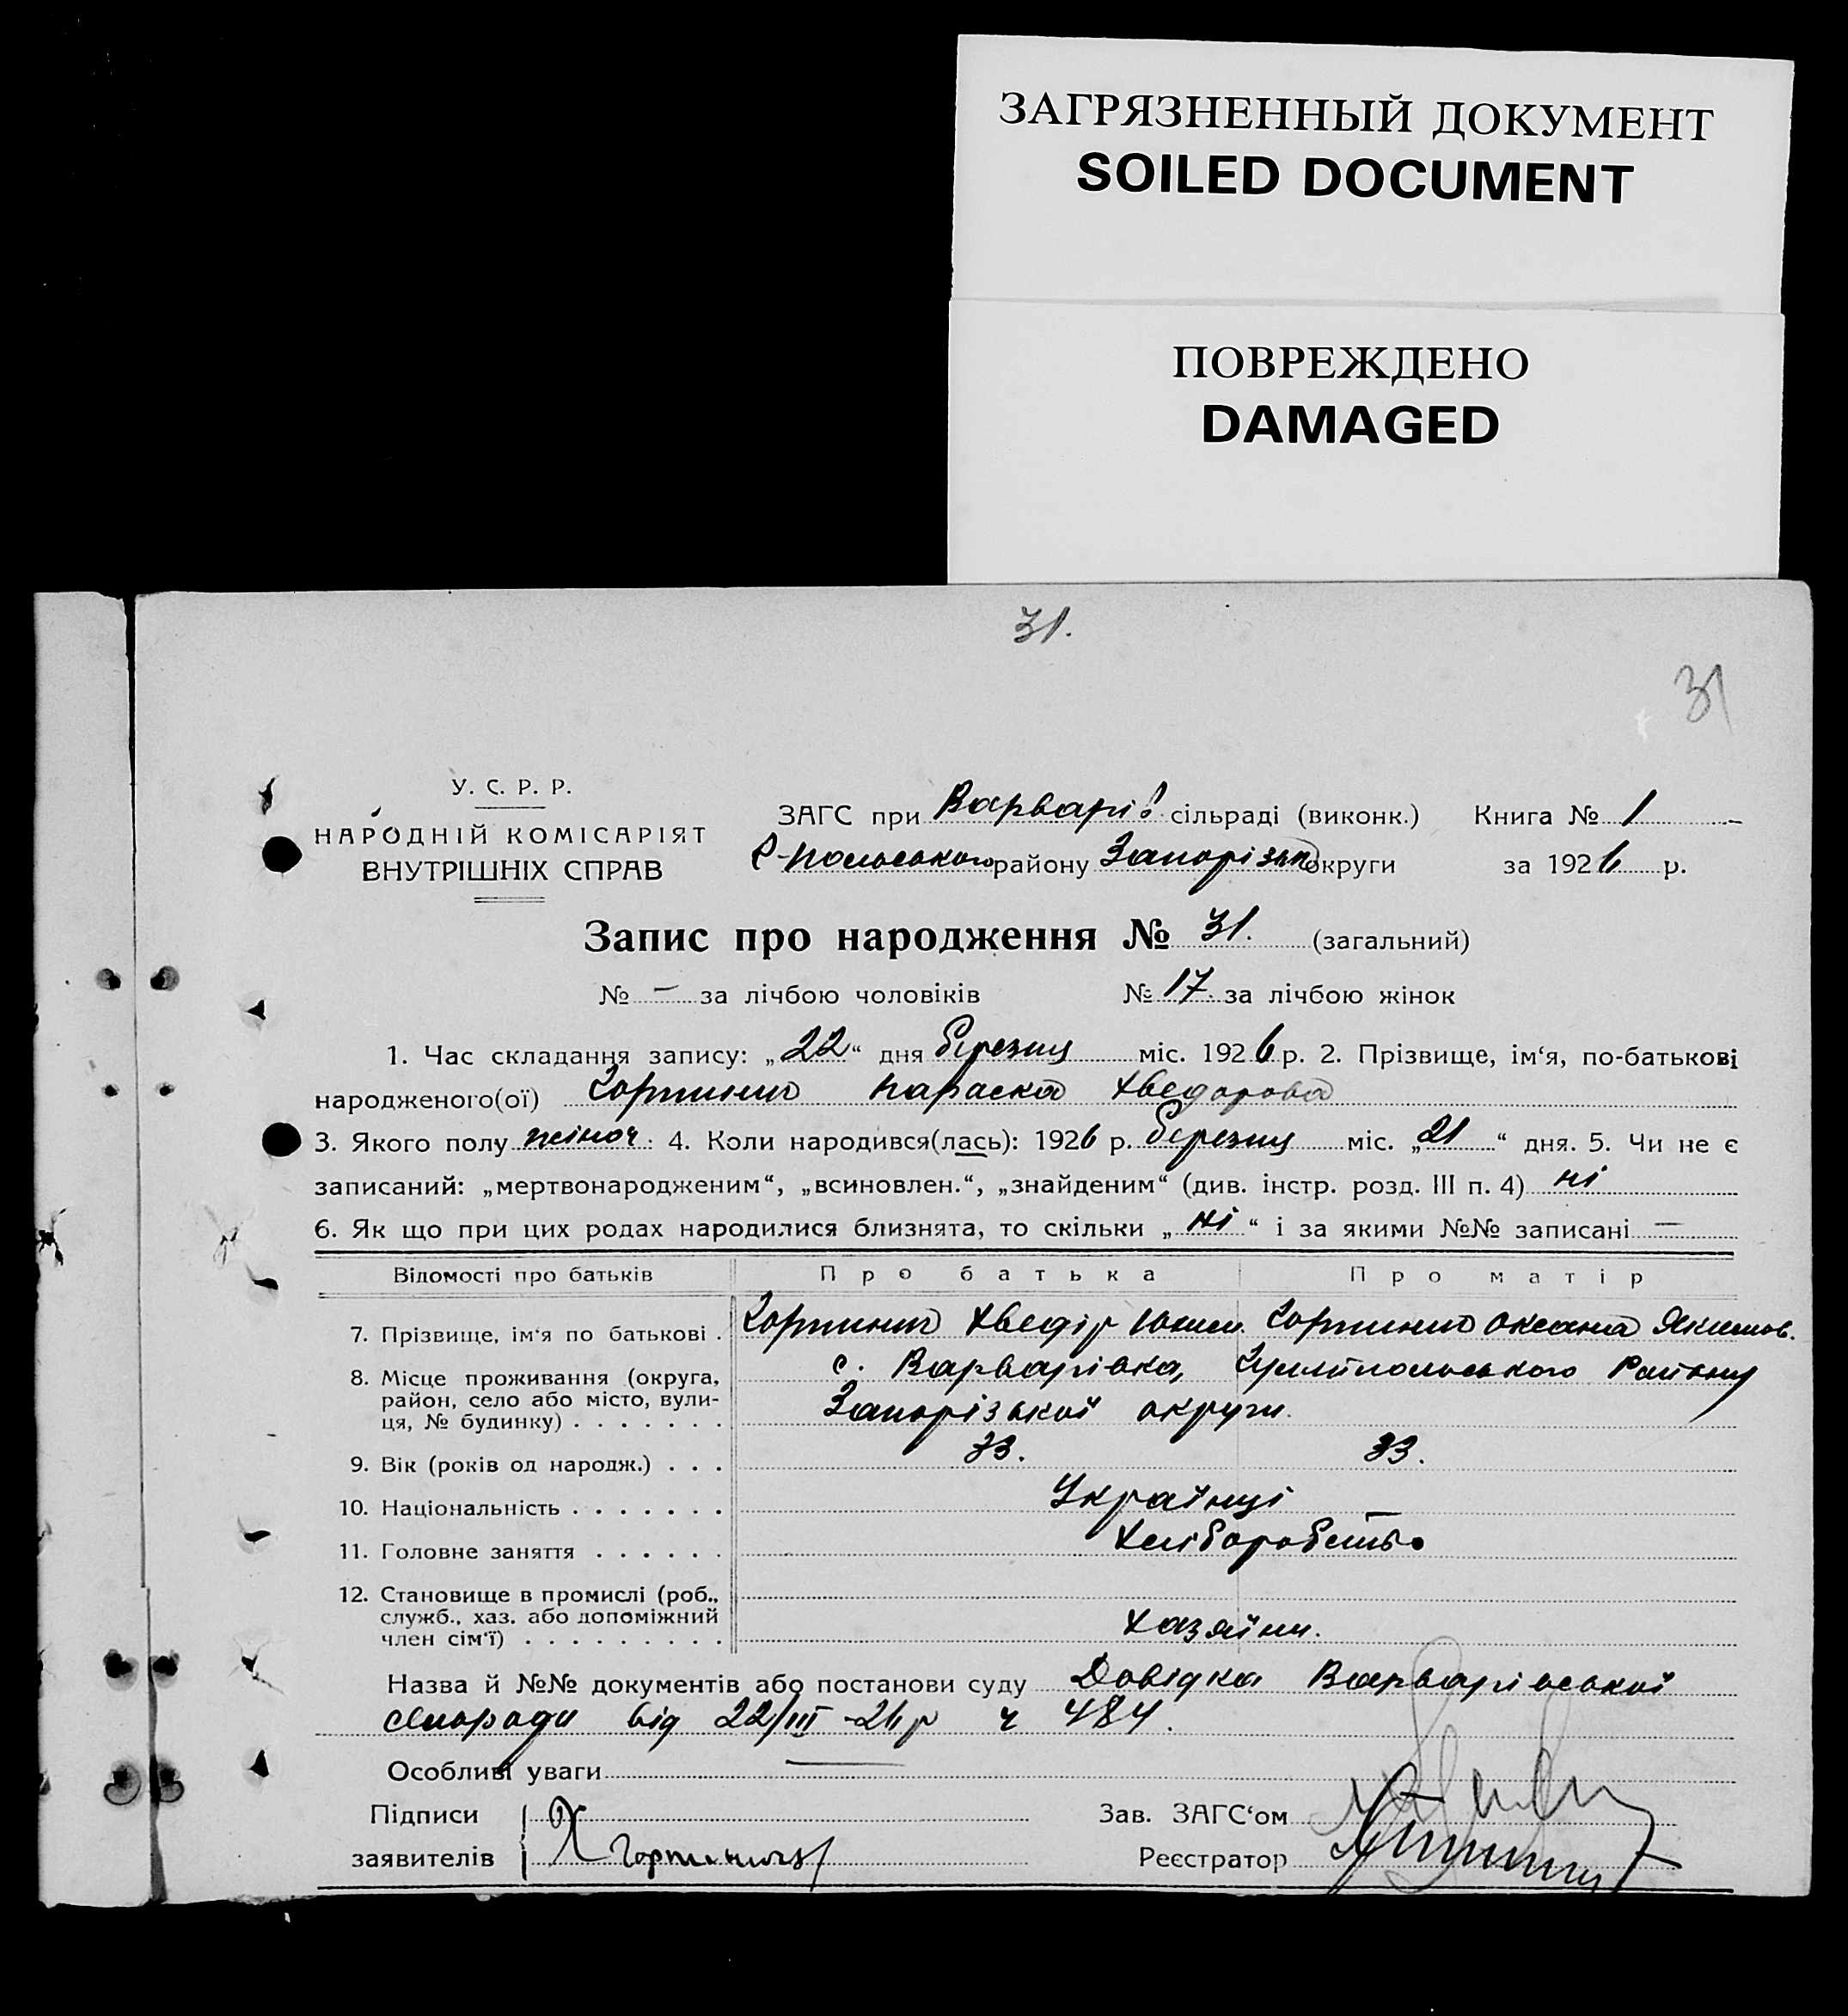 ЗАГРЯЗНЕННЫЙ ДОКУМЕНТ
SOILED DOCUMENT
ПОВРЕЖДЕНО
DAMAGED
31.
31
У. С. Р. Р.
НАРОДНІЙ КОМІСАРІЯТ
ВНУТРІШНІХ СПРАВ
ЗАГС при Варварів. сільраді (виконк.) Книга № 1
-Польського району Запорізьк округи за 1926 р.
Запис про народження № 31. (загальний)
№ – за лічбою чоловіків № 17. за лічбою жінок
1. Час складання запису: „22“ дня березня міс. 1926 р. 2. Прізвище, ім‘я, по-батькові
народженого(ої) Гортинит Параска Хведорова
3. Якого полу жіноч. 4. Коли народився(лась): 1926 р. березня міс. „21“ дня. 5. Чи не є
записаний: „мертвонародженим“, „всиновлен.“, „знайденим“ (див. інстр. розд. III п. 4) ні
6. Як що при цих родах народилися близнята, то скільки „ні“ і за якими №№ записані —
Відомості про батьків Про батька Про матір
7. Прізвище, ім‘я по батькові . Хведір Оксана Якимов.
8. Місце проживання (округа, район, село або місто, вулиця, № будинку) . . . . . . . с. Варварівка, Гуляйпольського Району
Запорізької округи.
9. Вік (років од народж.) . . . 33. 33.
10. Національність . . . . . . . Українці
11. Головне заняття . . . . . . Хліборобство
12. Становище в промислі (роб., служб., хаз. або допоміжний член сім‘ї) . . . . . . . . . Хазяїни.
Назва й №№ документів або постанови суду Довідка Варварівської
сільради від 22/III-26 р ч 484.
Особливі уваги —
Підписи
заявителів
Зав. ЗАГС‘ом
Реєстратор